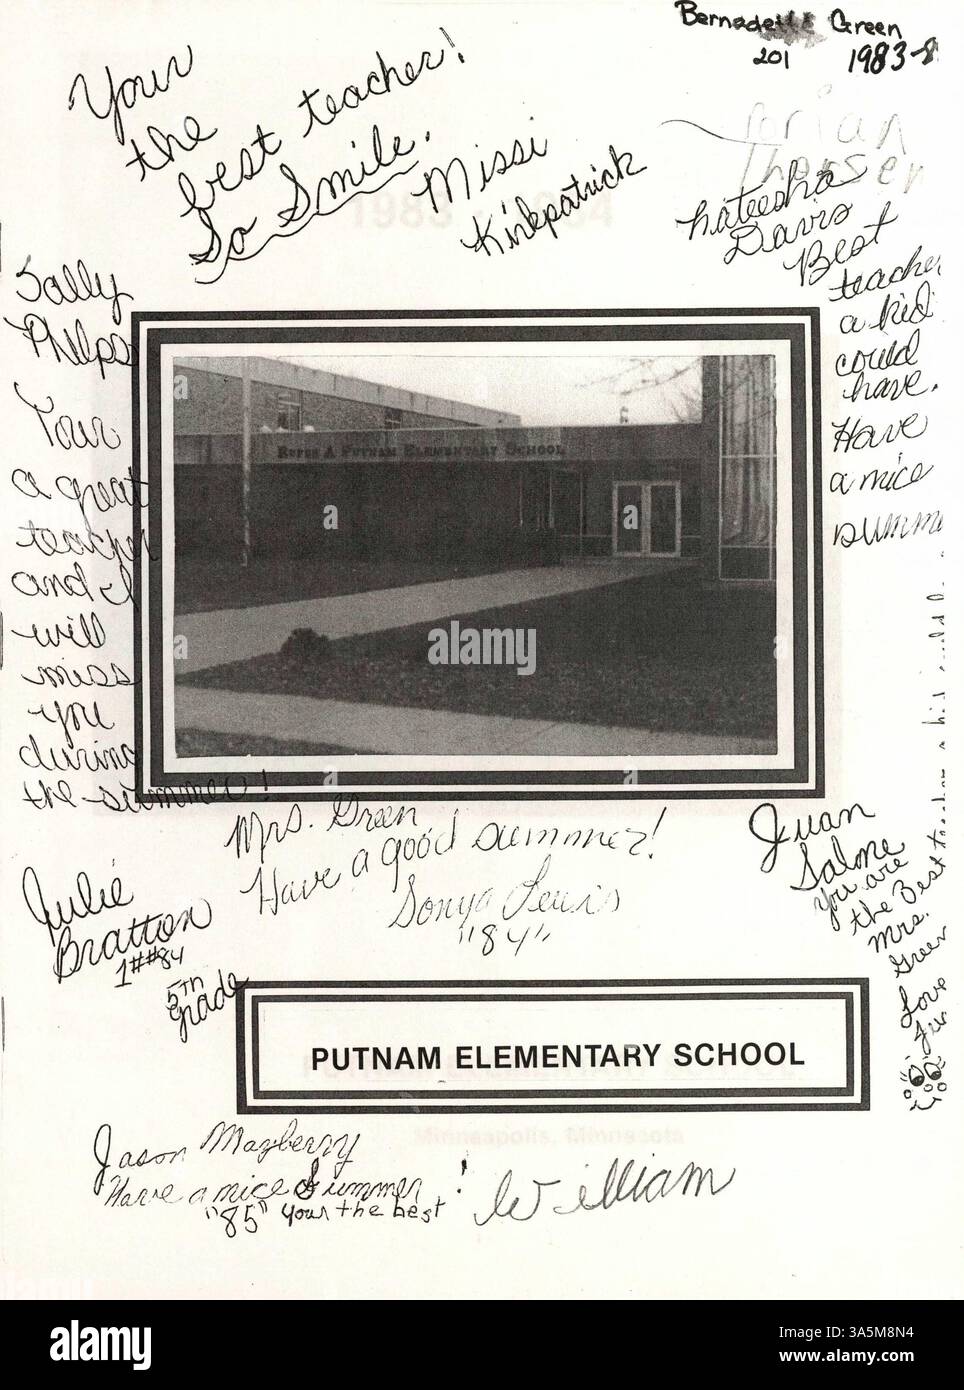 Bernadette Green
201 1983-8
Your
the
best teacher!
So Smile.
Missi
Kirkpatrick
Dorian
Thorsen
Kateesha
Davis
Best
teacher
a kid
could
have.
Have
a nice
summe
Sally
Phelps
Your
a great
teacher
and I
will
miss
you
during
the summer!
RUFUS A PUTNAM ELEMENTARY SCHOOL
Mrs. Green
Have a good summer!
Sonya Lewis
"84"
Julie
Bratton
1##84
5TH
grade
Juan
Salone
you are
the Best teacher a kid could
Mrs.
Green
Love
Jua
PUTNAM ELEMENTARY SCHOOL
Minneapolis, Minnesota
Jason Mayberry
Have a nice Summer!
"85" your the best
William
alamy
Image ID: 3A5M8N4
www.alamy.com